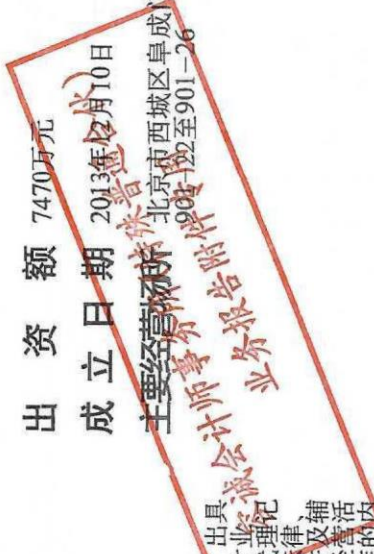 出资额 7470万元
成立日期 2013年12月10日
主要经营场所 北京市西城区阜成
901-22至901-26
诚会计师事务所(特殊普通合伙)
业务报告附件专用
出具
理记
律、
及辅
营活
的内